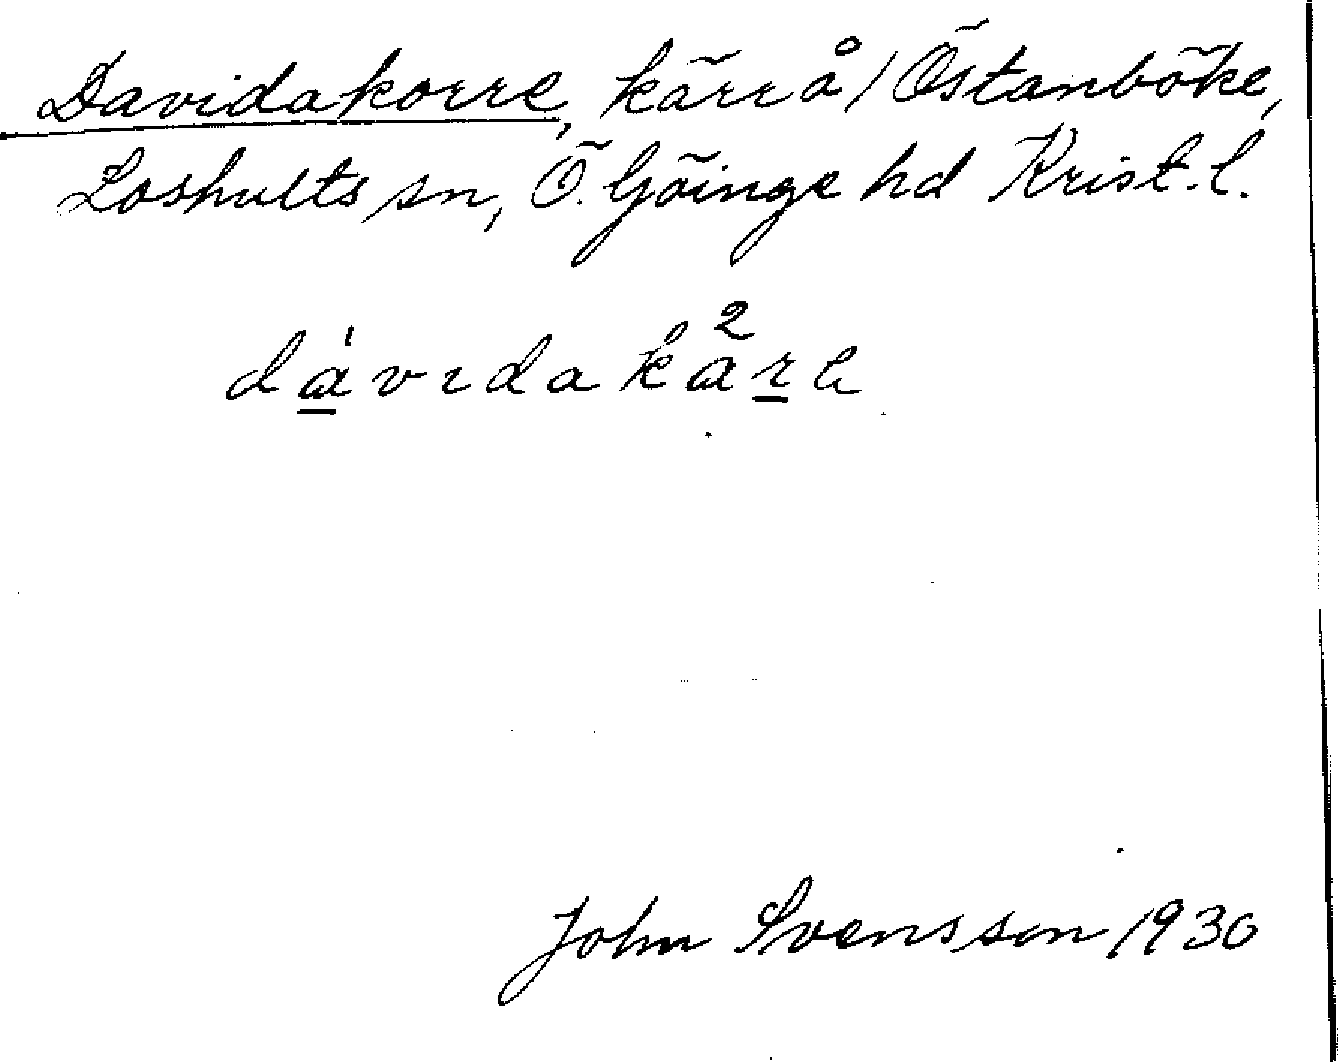 Davidakorre, kärr å / Östanböke,
Loshults sn, Ö. Göinge hd Krist. l.
John Svensson 1930